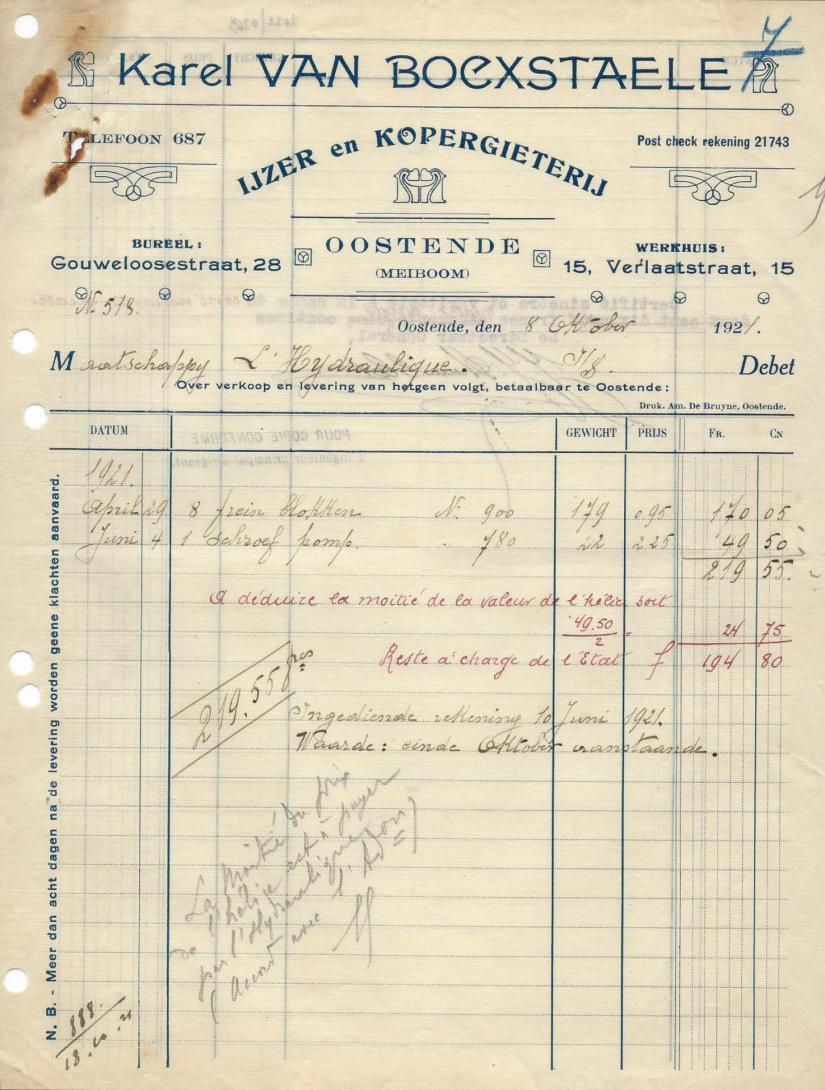 Karel VAN BOEXSTAELE
TELEFOON 687
IJZER en KOPERGIETERIJ
Post check rekening 21743
BUREEL:
Gouweloosestraat, 28
OOSTENDE
(MEIBOOM)
WERKHUIS:
15, Verlaatstraat, 15
N. 518.
Oostende, den 8 Oktober 1921.
Maatschappy L'Hydraulique. Debet
Over verkoop en levering van hetgeen volgt, betaalbaar te Oostende:
Druk. Am. De Bruyne, Oostende.
DATUM GEWICHT PRIJS FR. CN
1921.
April 29 8 frein blokken N. 900 179 0.95 170 05
Juni 4 1 schroef pomp. . 780 22 2.25 49 50
219 55.
A déduire la moitié de la valeur de l'hélice soit
49.50/2 = 24 75
Reste à charge de l'Etat f 194 80
219.55 frcs
Ingediende rekening 10 Juni 1921.
Waarde: einde Oktober aanstaande.
La moitié du prix
de l'hélice est à payer
par l'Hydraulique
(Accord avec l'Ad
N. B. - Meer dan acht dagen na de levering worden geene klachten aanvaard.
888.
18.10.21
POUR COPIE CONFORME:
L'Ingénieur principal dirigeant.